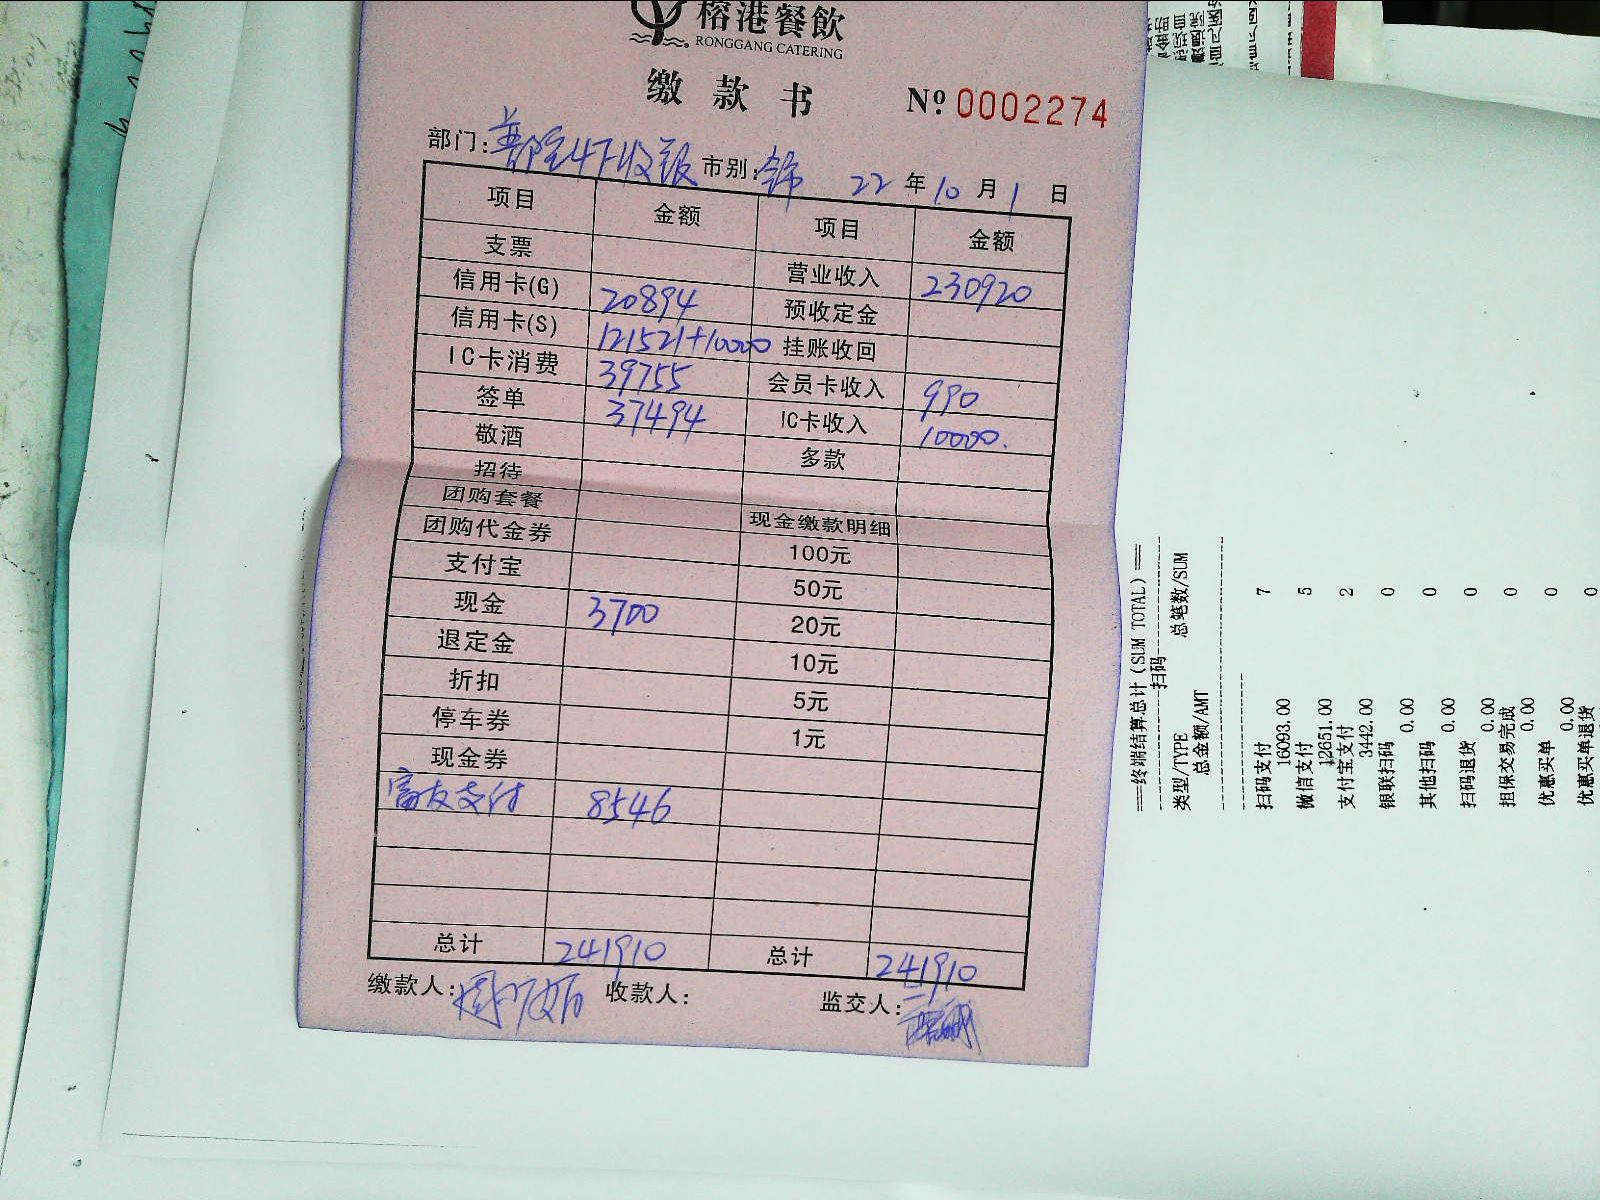 榕港餐飲
RONGGANG CATERING
缴款书 № 0002274
部门: 4F收银 市别: 22 年 10 月 1 日
项目 金额 项目 金额
支票 营业收入 230920
信用卡(G) 20894 预收定金
信用卡(S) 121521+10000 挂账收回
IC卡消费 39755 会员卡收入 990
签单 37494 IC卡收入 10000.
敬酒 多款
招待
团购套餐 现金缴款明细
团购代金券 100元
支付宝 50元
现金 3700 20元
退定金 10元
折扣 5元
停车券 1元
现金券
富友支付 8546
总计 241910 总计 241910
缴款人: 收款人: 监交人:
===终端结算总计(SUM TOTAL)===
扫码
类型/TYPE 总笔数/SUM
总金额/AMT
扫码支付 7
16093.00
微信支付 5
12651.00
支付宝支付 2
3442.00
银联扫码 0
0.00
其他扫码 0
0.00
扫码退货 0
0.00
担保交易完成 0
0.00
优惠买单 0
0.00
优惠买单退货 0